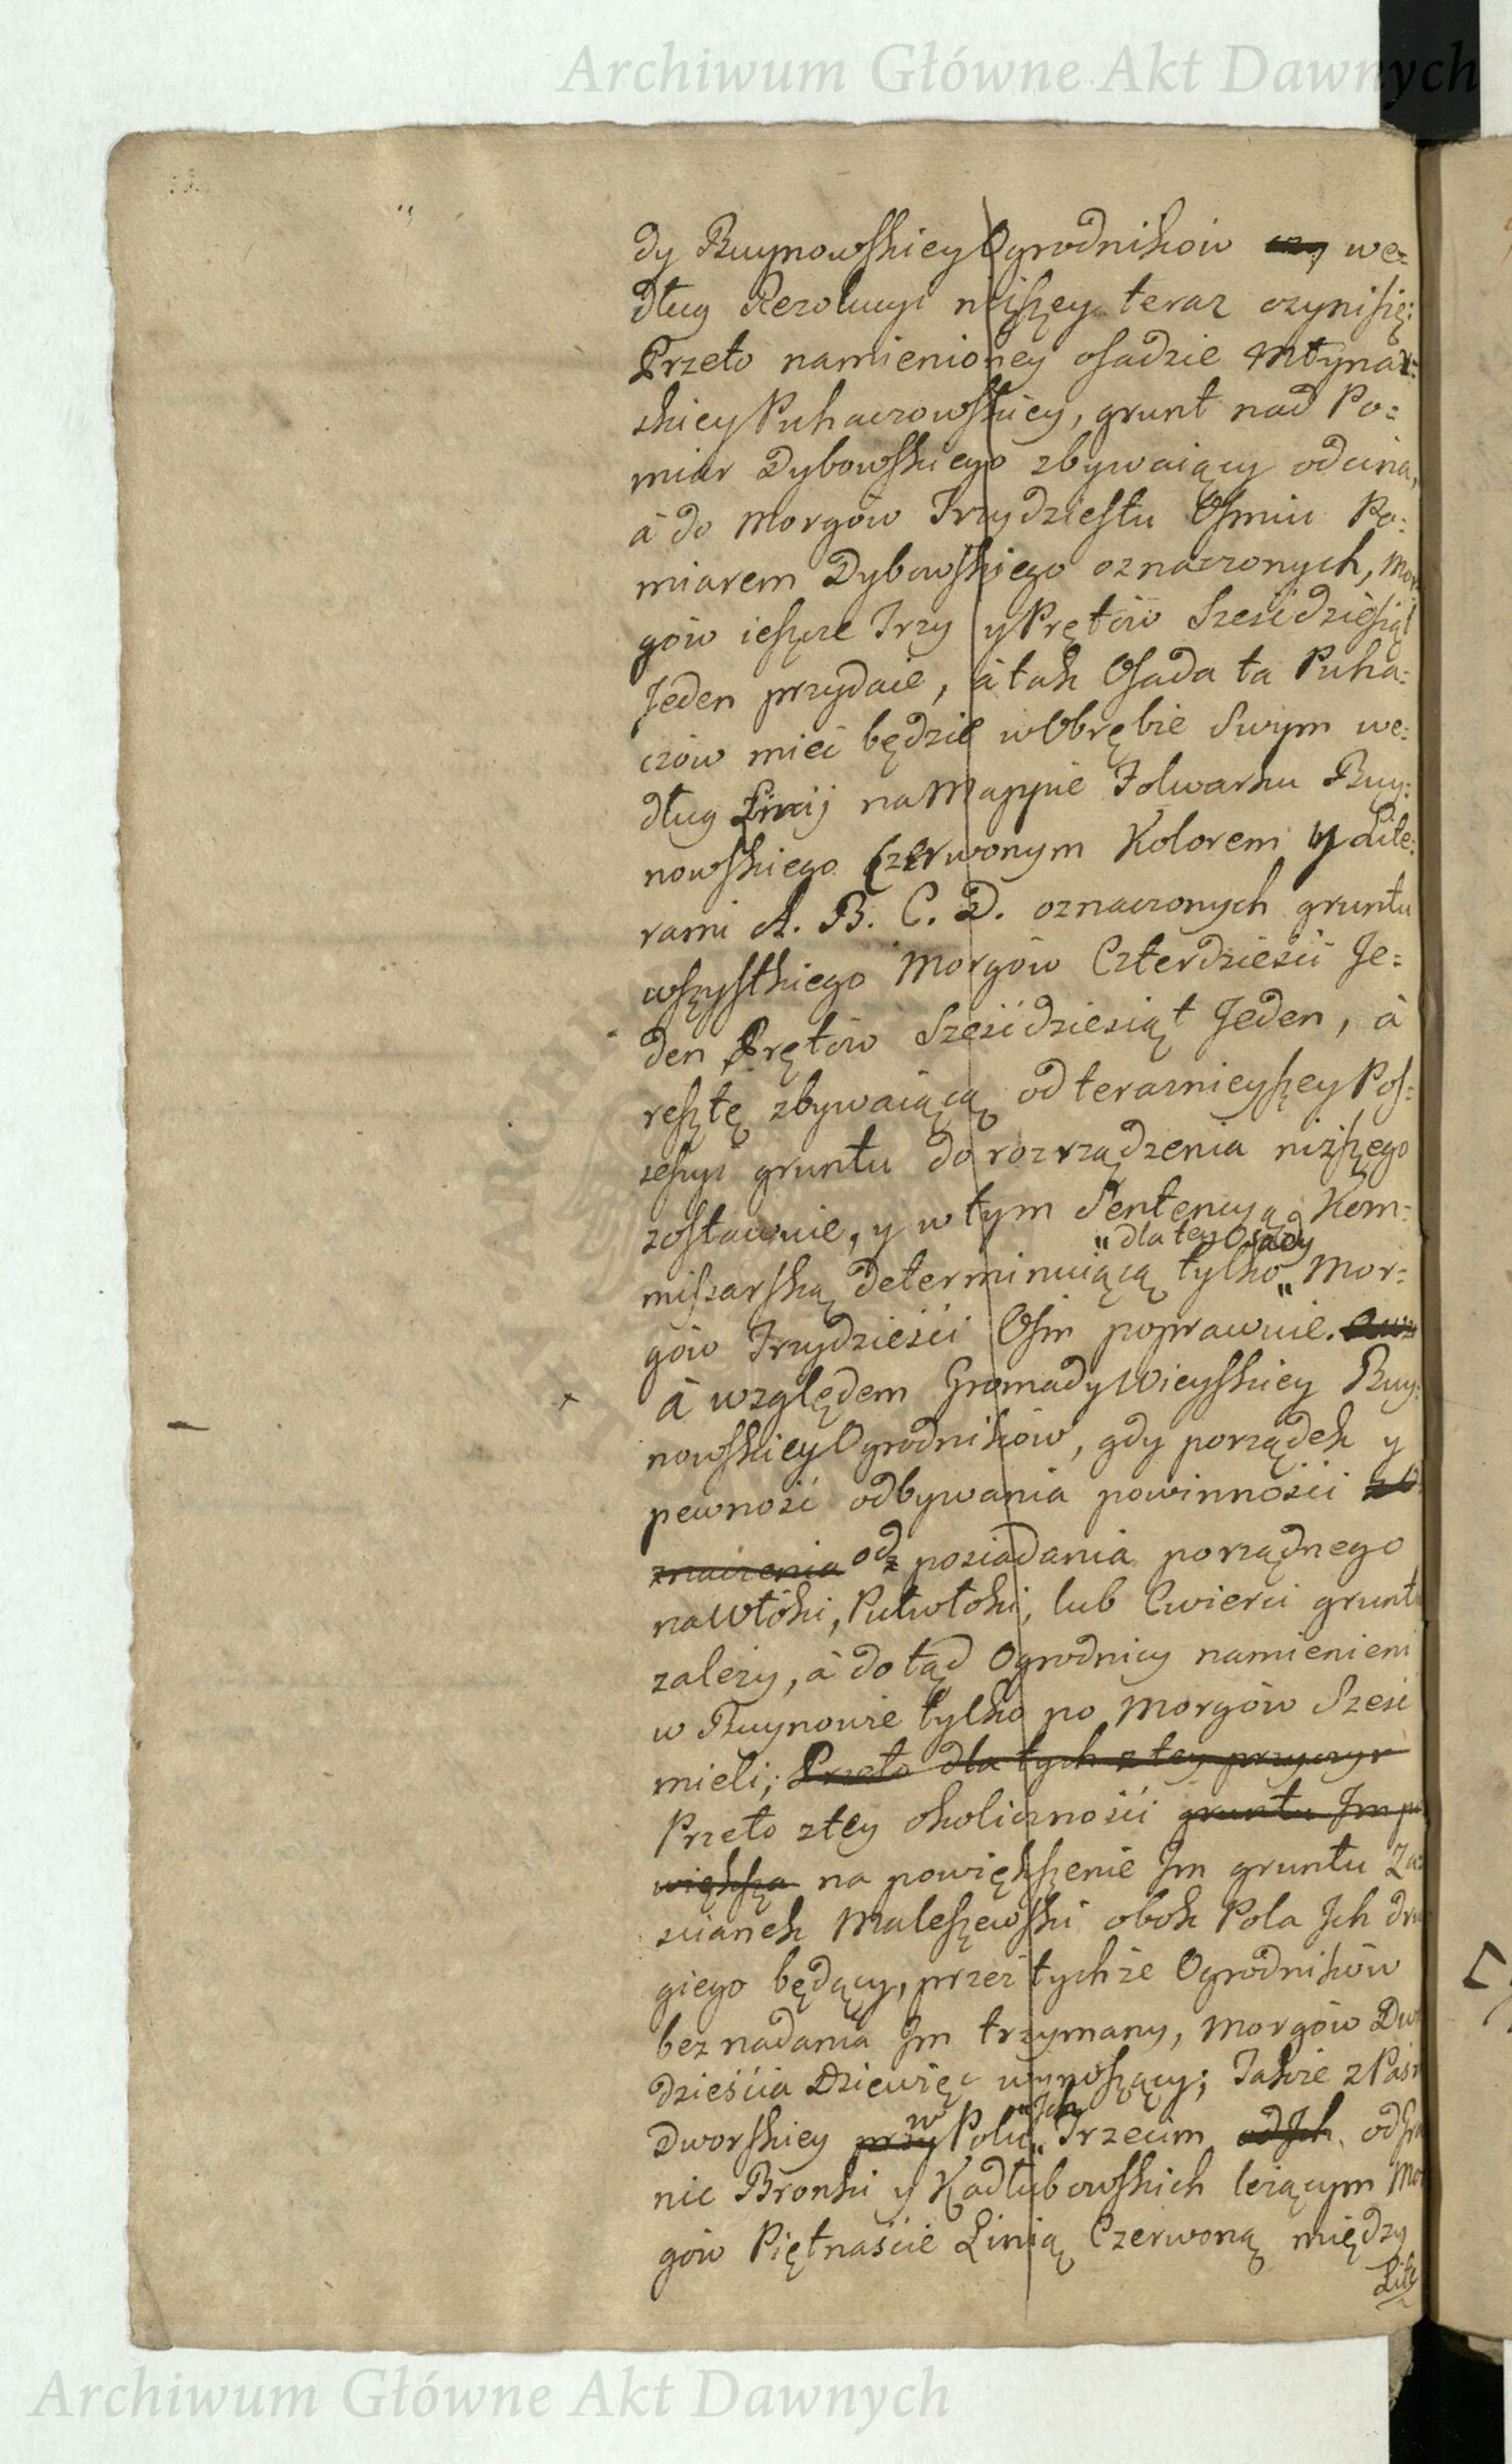 Archiwum Główne Akt Dawnych
dy Ruynowskiey Ogrodników czy we=
dług Rezolucyi niższey teraz czyni się;
Przeto namienioney osadzie Młynar=
skiey Puhaczowskiey, grunt nad Po=
miar Dybowskiego zbywaiący odcina,
à do Morgów Trzydziestu Osmiu Po=
miarem Dybowskiego oznaczonych, Mor
gów ieszcze Trzy y Prętów Sześćdziesiąt
Jeden przydaie, à tak Osada ta Puha=
czów mieć będzie w Obrębie Swym we=
dług Linij na Mappie Folwarku Ruy=
nowskiego Czerwonym Kolorem y Lite=
rami A. B. C. D. oznaczonych gruntu
wszystkiego Morgów Czterdzieści Je=
den Prętów Sześćdziesiąt Jeden, à
resztę zbywaiącą od teraznieyszey Pos=
sessyi gruntu do rozrządzenia niższego
zostawuie, y w tym Sentencyą Kom=
"dla tey Osady
missarską determinuiącą tylko " Mor=
gów Trzydzieści Osm poprawuie.
à względem Gromady Wieyskiey Ruy=
nowskiey Ogrodników, gdy porządek y
pewność odbywania powinności
znaczenia od posiadania porządnego
na Włóki, Pułwłoki, lub Cwierci gruntu
zależy, à dotąd Ogrodnicy namienieni
w Ruynowie tylko po Morgów Sześć
mieli; Przeto dla tych z tey przyczyn
Przeto z tey okoliczności gruntu Im po
większa na powiększenie Im gruntu Za=
scianek Maleszewski obok Pola Ich dru
giego będący, przez tychże Ogrodników
bez nadania Im trzymany, Morgów Dwa
dzieścia Dziewięć wynoszący; Takze z Pasz
w "Ich
Dworskiey przy Polu " Trzecim od Ich od Gra
nic Bronki y Kadłubowskich leżącym Mor
gów Piętnaście Linią Czerwoną między
Lite
Archiwum Główne Akt Dawnych